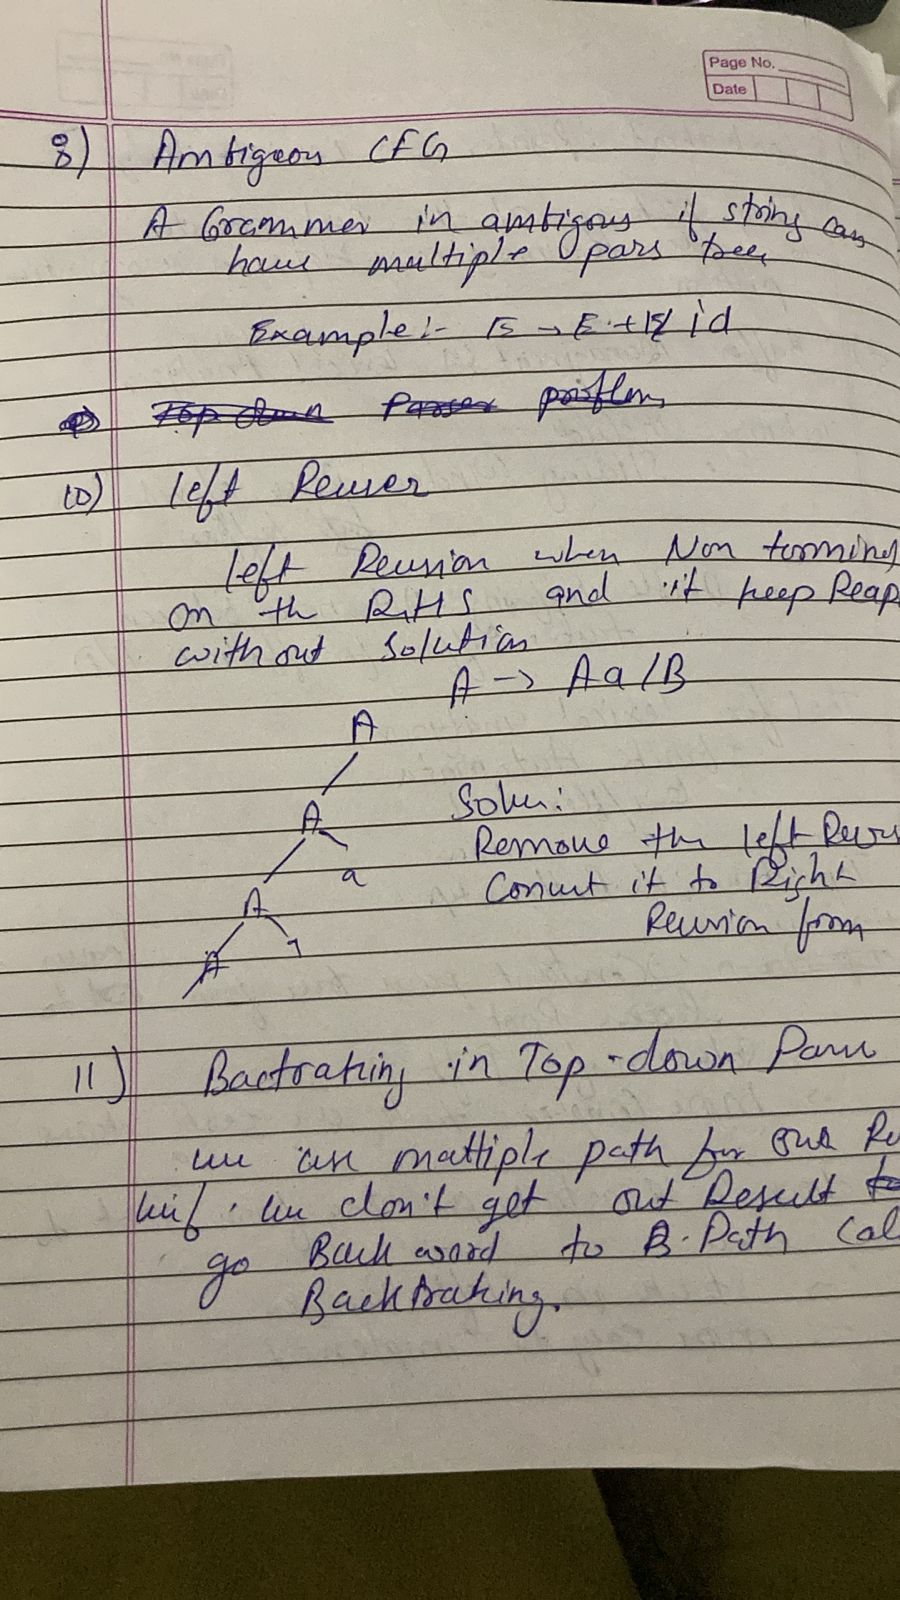 Page No.
Date
8) Ambigeon CFG
A Grammer in ambigous if string can
have multiple pars tree
Example:- E → E+E/id
Top down Parser problem
10) left Recuser
left Recursion when Non torming
on th RHS and it keep Reap
without Solution
A → Aa/B
A
A
Solu:
Remove the left Recurs
a
Convert it to Right
A
Recursion from
A
11) Bactraking in Top-down Parse
we use mattiple path for our Re
we don't get out Result to
go Back word to B.Path Cal
Backtraking.